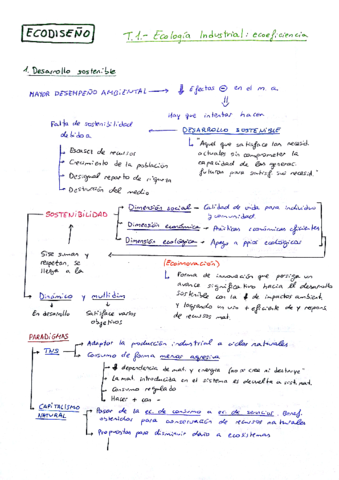 ECODISEÑO
T.1.- Ecología Industrial: ecoeficiencia
1. Desarrollo sostenible
MAYOR DESEMPEÑO AMBIENTAL → ↓ Efectos ⊖ en el m.a.
Hay que intentar hacer
Falta de sostenibilidad
debido a
DESARROLLO SOSTENIBLE
"Aquel que satisface las necesid.
actuales sin comprometer la
capacidad de las generac.
futuras para satisf. sus necesid."
Escasez de recursos
Crecimiento de la población
Desigual reparto de riqueza
Destrucción del medio
SOSTENIBILIDAD
Dimensión social → Calidad de vida para individuo
y comunidad.
Dimensión económica → Prácticas económicas eficientes
Dimensión ecológica → Apoyo a ppios ecológicos
Si se suman y
respetan, se
llega a la
(Ecoinnovación)
Forma de innovación que persigue un
avance significativo hacia el desarrollo
sostenible con la ↓ de impactos ambient.
y logrando un uso + eficiente de y respons.
de recursos nat.
Dinámico y multidim
En desarrollo
Satisface varios
objetivos
PARADIGMAS
TNS
Adaptar la producción industrial a ciclos naturales.
Consumo de forma menos agresiva
↓ dependencia de mat. y energía
La mat. introducida en el sistema es devuelta a sist. nat.
Consumo regulado
Hacer + con -
CAPITALISMO
NATURAL
Pasar de la ec. de consumo a ec. de servicios. Benef.
obtenidos para conservación de recursos naturales
Propuestas para disminuir daño a ecosistemas